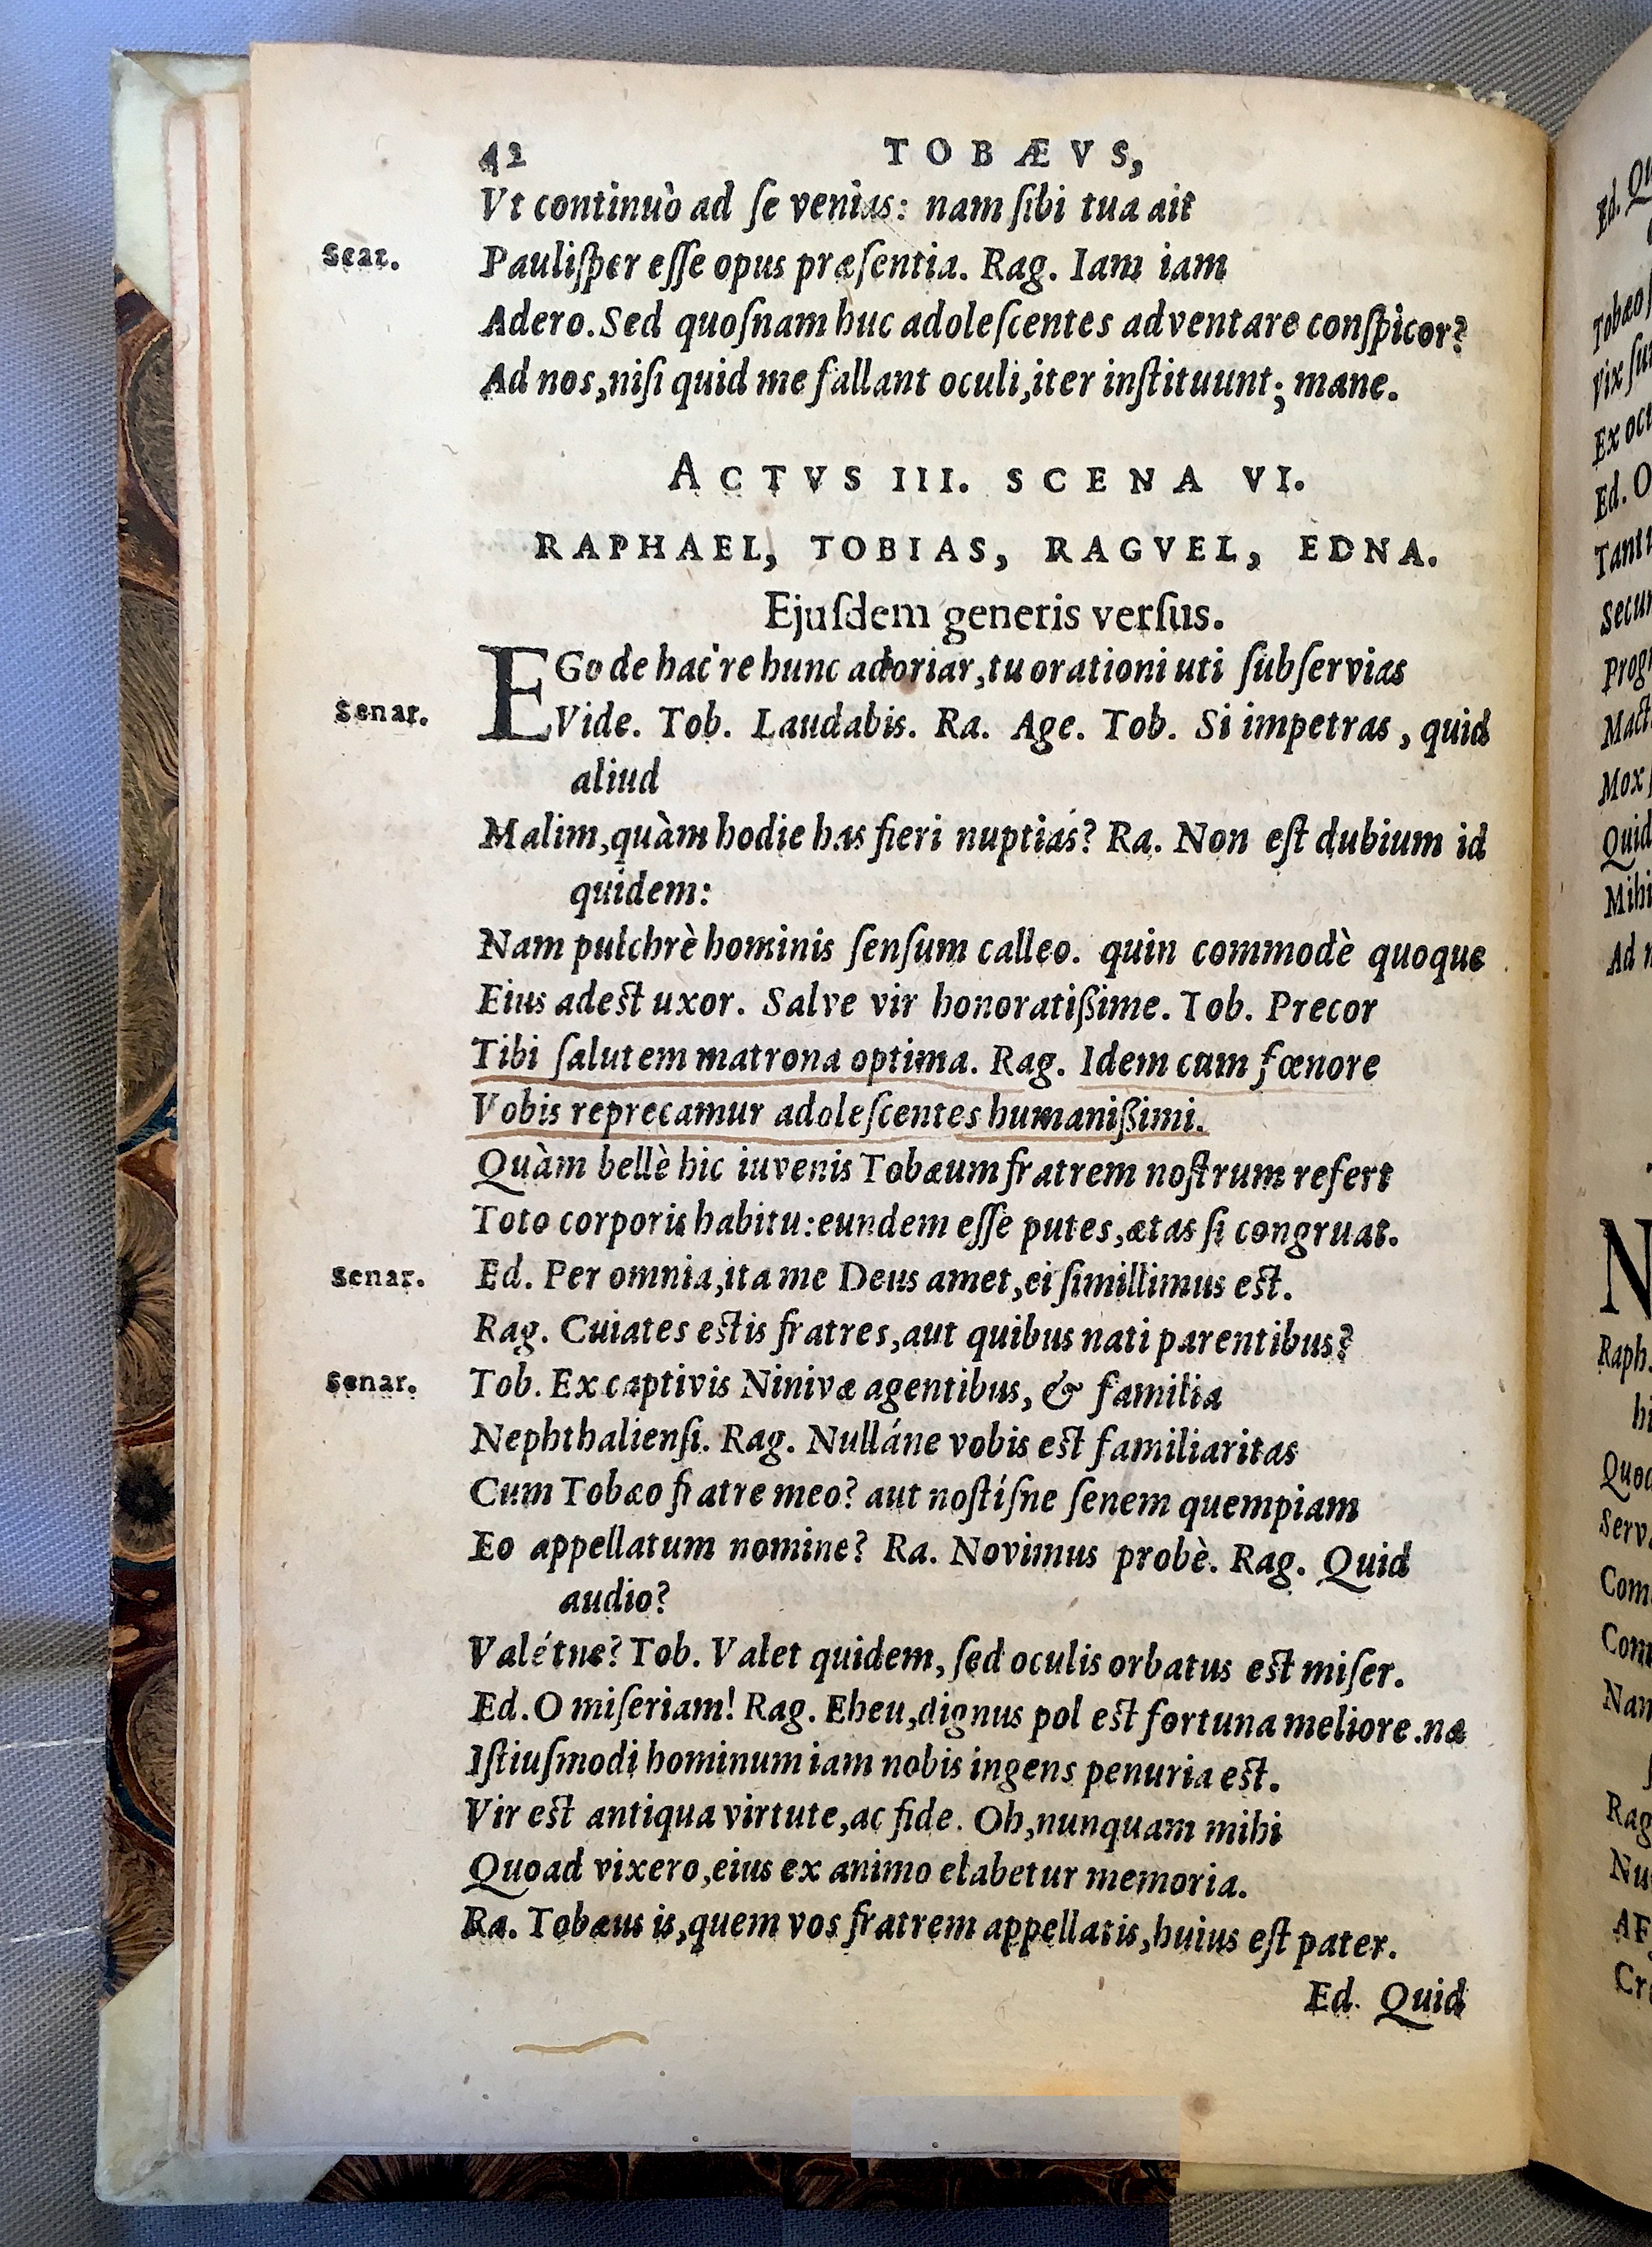 42 TOBÆVS,
Vt continuò ad ſe venias: nam ſibi tua ait
Scat.
Pauliſper eſſe opus præſentia. Rag. Iam iam
Adero. Sed quoſnam huc adoleſcentes adventare conſpicor?
Ad nos, niſi quid me fallant oculi, iter inſtituunt; mane.
ACTVS III. SCENA VI.
RAPHAEL, TOBIAS, RAGVEL, EDNA.
Ejuſdem generis verſus.
EGo de hac re hunc adoriar, tu orationi uti ſubſervias
Senar.
Vide. Tob. Laudabis. Ra. Age. Tob. Si impetras, quid
aliud
Malim, quàm hodie has fieri nuptias? Ra. Non eſt dubium id
quidem:
Nam pulchrè hominis ſenſum calleo. quin commodè quoque
Eius adeſt uxor. Salve vir honoratißime. Tob. Precor
Tibi ſalutem matrona optima. Rag. Idem cum fœnore
Vobis reprecamur adoleſcentes humanißimi.
Quàm bellè hic iuvenis Tobæum fratrem noſtrum refert
Toto corporis habitu: eundem eſſe putes, ætas ſi congruat.
Senar.
Ed. Per omnia, ita me Deus amet, ei ſimillimus eſt.
Rag. Cuiates eſtis fratres, aut quibus nati parentibus?
Senar.
Tob. Ex captivis Ninivæ agentibus, & familia
Nephthalienſi. Rag. Nulláne vobis eſt familiaritas
Cum Tobæo fratre meo? aut noſtíſne ſenem quempiam
Eo appellatum nomine? Ra. Novimus probè. Rag. Quid
audio?
Valétne? Tob. Valet quidem, ſed oculis orbatus eſt miſer.
Ed. O miſeriam! Rag. Eheu, dignus pol eſt fortuna meliore. næ
Iſtiuſmodi hominum iam nobis ingens penuria eſt.
Vir eſt antiqua virtute, ac fide. Oh, nunquam mihi
Quoad vixero, eius ex animo elabetur memoria.
Ra. Tobæus is, quem vos fratrem appellatis, huius eſt pater.
Ed. Quid